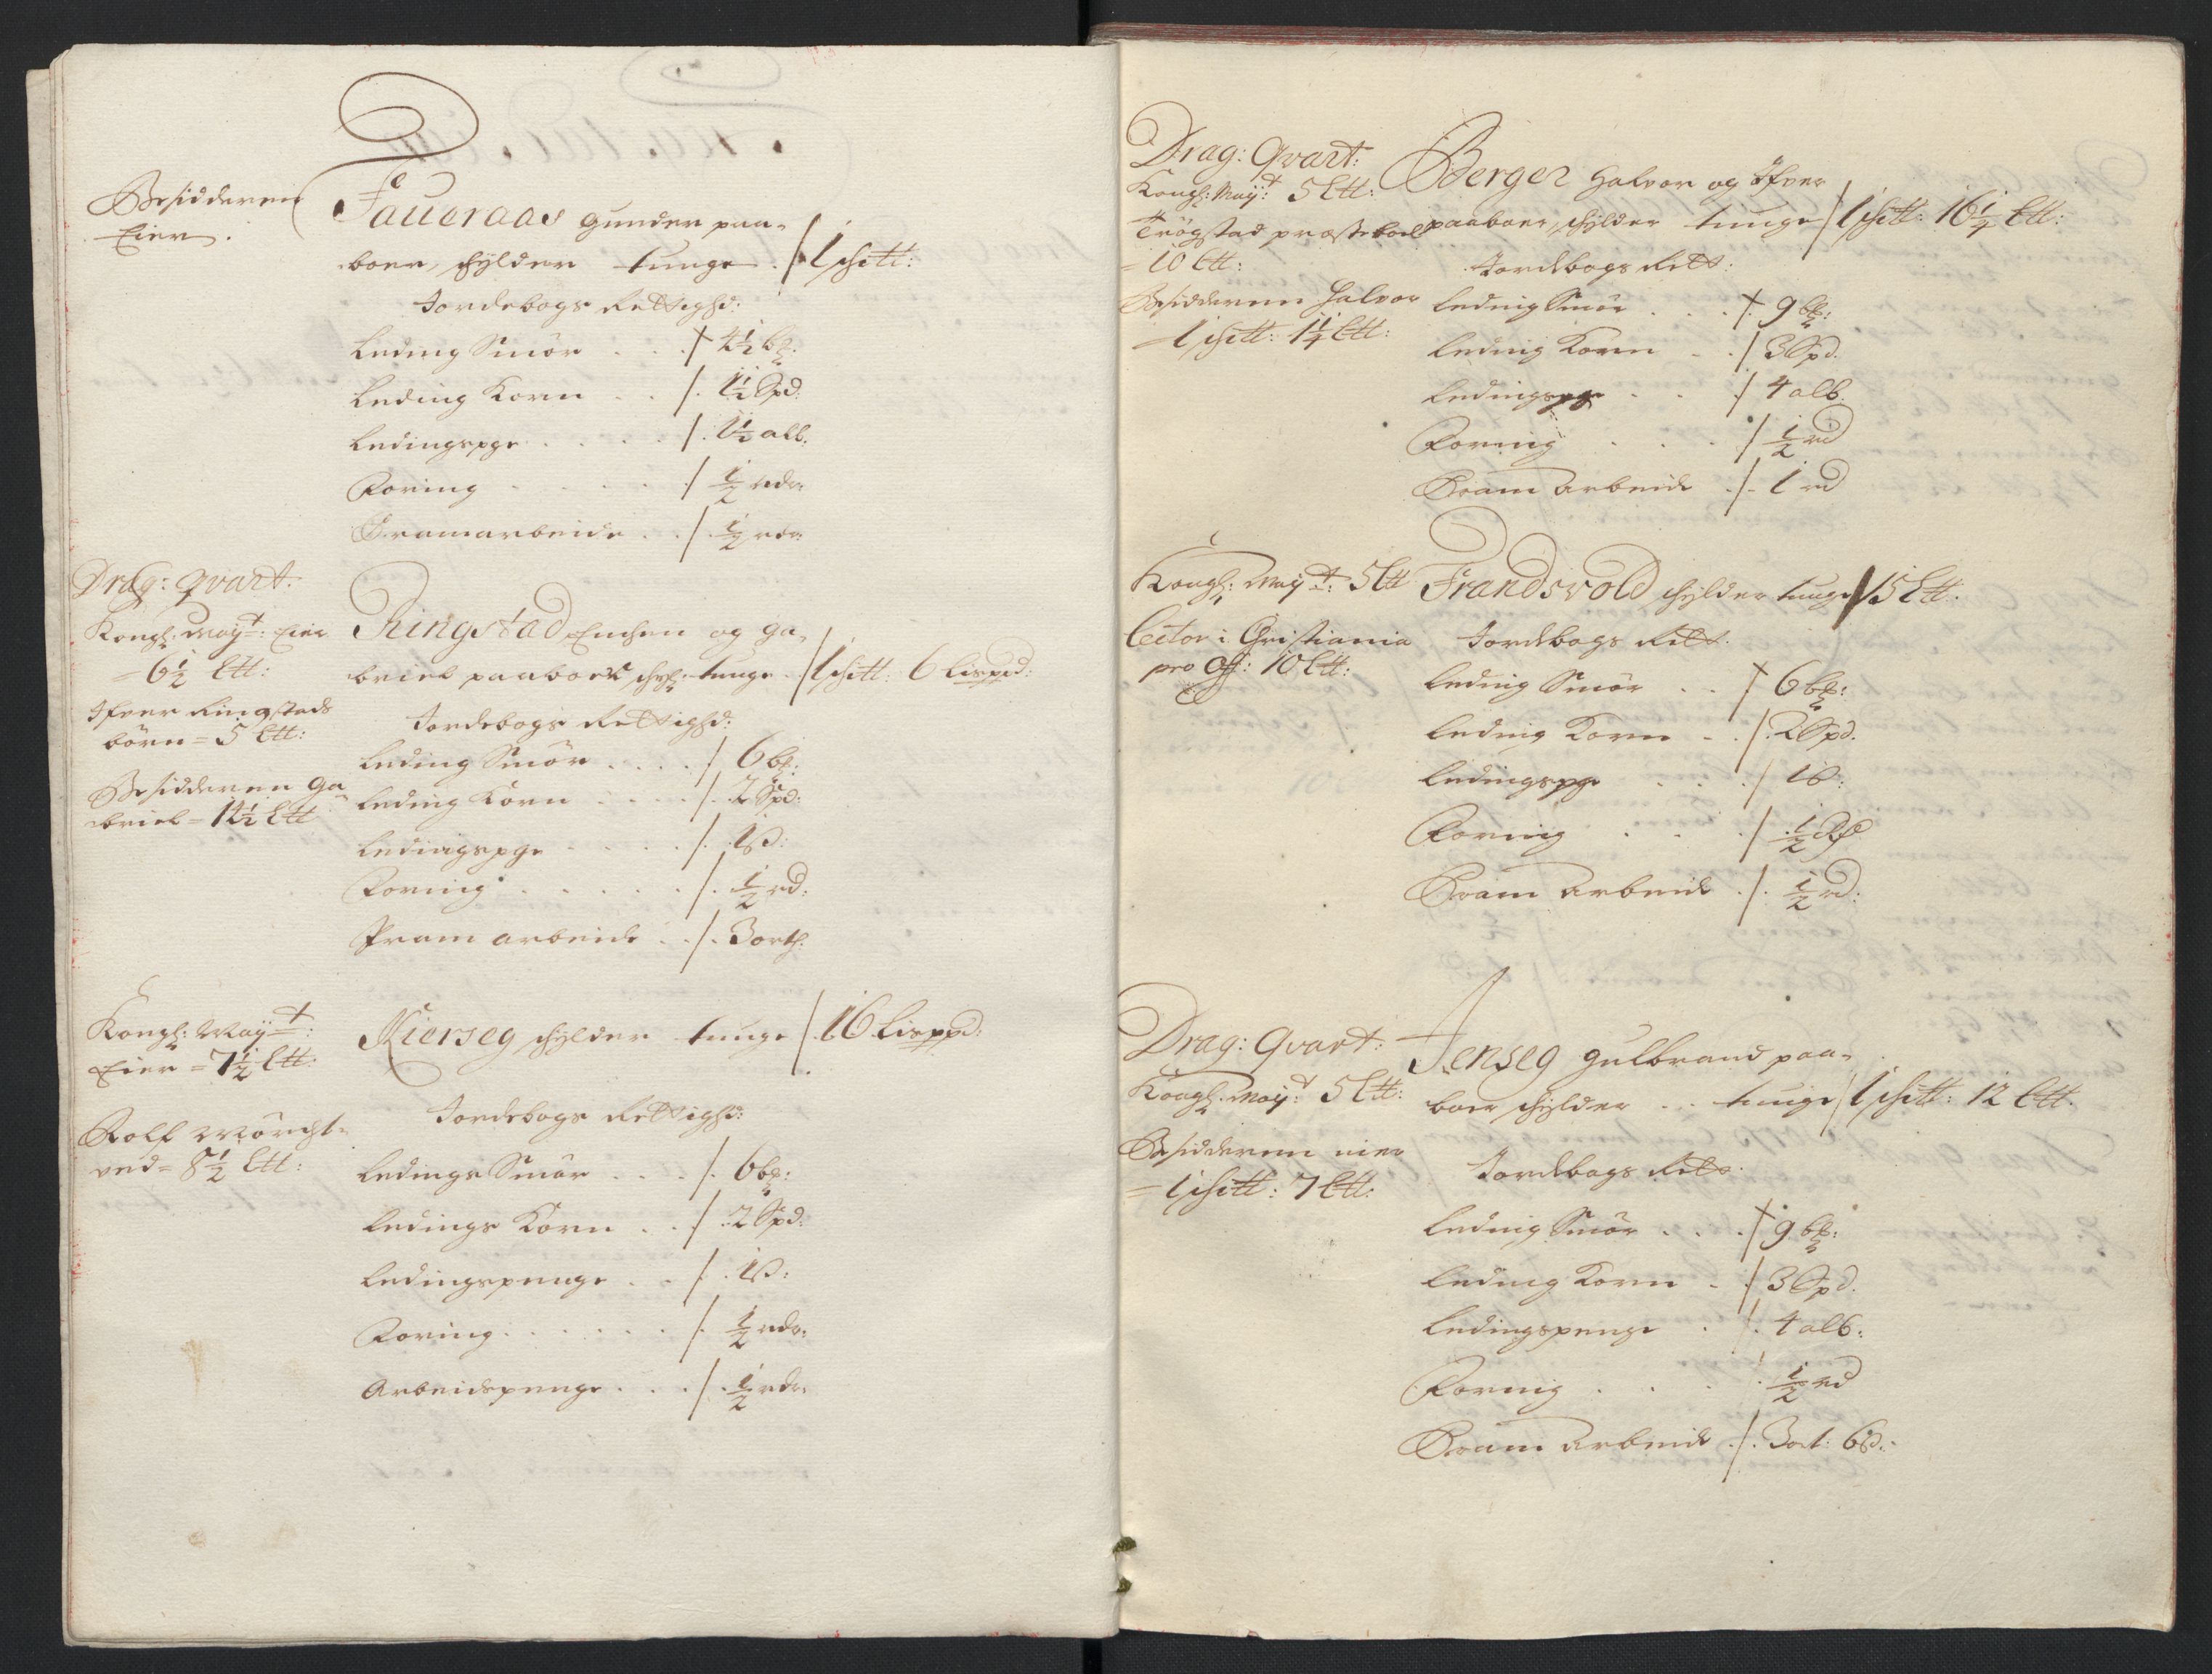 Besidderen
Eier.
Faueraas Gunder paa-
boer, schylder tunge ./. 1 schtt:
Jordebogs Rettighd:
Leding Smör . . . ./. 4½ bp:
Leding Korn . . ./. 1½ Spd:
Ledingspge . . . . ./. 1½ alb:
Foring . . . . . ./. ½ rdr:
Pramarbeide . . ./. ½ rdr:
Drag: qvart:
Kongl: Mayt: Eier
= 6½ Ltt:
Ifver Ringstads
börn = 5 Ltt:
Besidderen Ga
briel = 14½ Ltt
Ringstad Enchen og Ga-
briel paaboer schyl: tunge ./. 1 schtt: 6 Lispd:
Jordebogs Rettighd:
Leding Smör . . . . ./. 6 bp:
Leding Korn . . . . ./. 2 Spd:
Ledingspge . . . . ./. 1 ß:
Foring . . . . . . ./. ½ rd:
Pram arbeide . . ./. 3 orth.
Kongl: Mayt:
Eier = 7½ Ltt:
Rolf
ved = 8½ Ltt:
Kierseg schylder tunge ./. 16 Lisppd:
Jordebogs Rettighd:
Ledings Smör . . . . ./. 6 bp:
Ledings Korn . . ./. 2 Spd:
Ledingspenge . . ./. 1 ß:
Foring . . . . . . ./. ½ rdr:
Arbeidspenge . . . ./. ½ rdr:
Drag: qvart:
Kongl: Mayt 5 Ltt:
Trögstad præsteboel
= 10 Ltt:
Besidderen Halvor
= 1 schtt: 1¼ Ltt:
Berger Halvor og Ifver
paaboer, schylder tunge ./. 1 schtt: 16¼ Ltt:
Jordbogs Rett:
Leding Smör . . . ./. 9 bp:
Leding Korn . . ./. 3 Spd.
Ledingspge . . ./. 4 alb.
Foring . . . ./. ½ rd
Pram Arbeide ./. 1 rd
Kongl: Mayt: 5 Ltt
Lector i Christiania
pro Off: 10 Ltt:
Frandsvold schylder tunge ./. 15 Ltt.
Jordbogs Rett:
Leding Smör . . ./. 6 bp:
Leding Korn . . ./. 2 Spd.
Ledingspge . . ./. 1 ß:
Foring . . . ./. ½ Rd
Pram Arbeide ./. ½ rd:
Drag: qvart:
Kongl: Mayt: 5 Ltt:
Besidderen eier
= 1 schtt: 7 Ltt:
Jenseg Gulbrand paa-
boer schylder . . tunge ./. 1 schtt: 12 Ltt.
Jordbogs Rett:
Leding Smör . . . ./. 9 bp:
Leding Korn . ./. 3 Spd.
Ledingspenge . ./. 4 alb:
Foring . . . . ½ rd
Pram Arbeide ./. 3 ort: 6 ß: